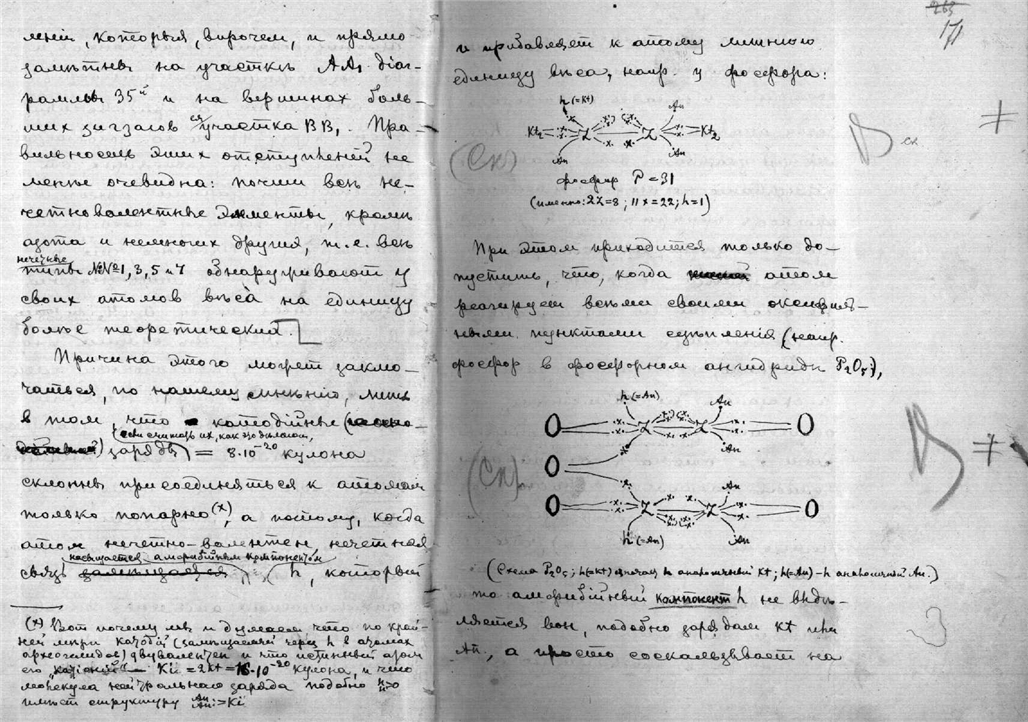 леній, которыя, впрочем, и прямо
замѣтны на участкѣ AA₁ діаг-
раммы 35й и на вершинах боль-
ших зигзагов участка BB₁. Пра-
вильность этих отступленій не
менѣе очевидна: почти всѣ не-
четновалентные элементы, кромѣ
азота и немногих других, т.е. всѣ
нечетные
типы №№1, 3, 5 и 7 обнаруживают у
своих атомов вѣса на единицу
болѣе теоретических.
Причина этого может заклю-
чаться, по нашему мнѣнію, лишь
в том что катодійные
если считать их, как мы дѣлаем,
заряды = 8·10⁻²⁰ кулона
склонны присоединяться к атомам
только попарно(x), а потому, когда
атом нечетно-валентен нечетная
насыщается амфибійным компонентом
связь h, который
(x) Вот почему мы и думаем что по край-
ней мѣрѣ катодій (замѣщаемый через h в атомах
археогелидов) двувалентен и что истинный атом
его Ki = 2Kt = 16·10⁻²⁰ кулона, и что
молекула нейтральнаго заряда подобно H H>O
имѣет структуру An An>Ki
265
171
и прибавляет к атому лишнюю
единицу вѣса, напр. у фосфора:
h (=Kt) An
Kt₂ Z Z Kt₂
An An
(Ск)
фосфор P = 31
(именно: 2Z=8; 11x=22; h=1)
При этом приходится только до-
пустить, что, когда атом
реагирует всѣми своими оксидиль-
ными пунктами сцѣпленія (напр.
фосфор в фосфорном ангидридѣ P₂O₅),
h (=An) An
O Z Z O
An
O
(Ск)
An
O Z Z O
h (=An) An
(Схема P₂O₅; h(=Kt) означает h аналогичный Kt; h(=An) – h аналогичный An.)
то амфибійный компонент h не выдѣ-
ляется вон, подобно зарядам Kt или
An, а просто соскальзывает на